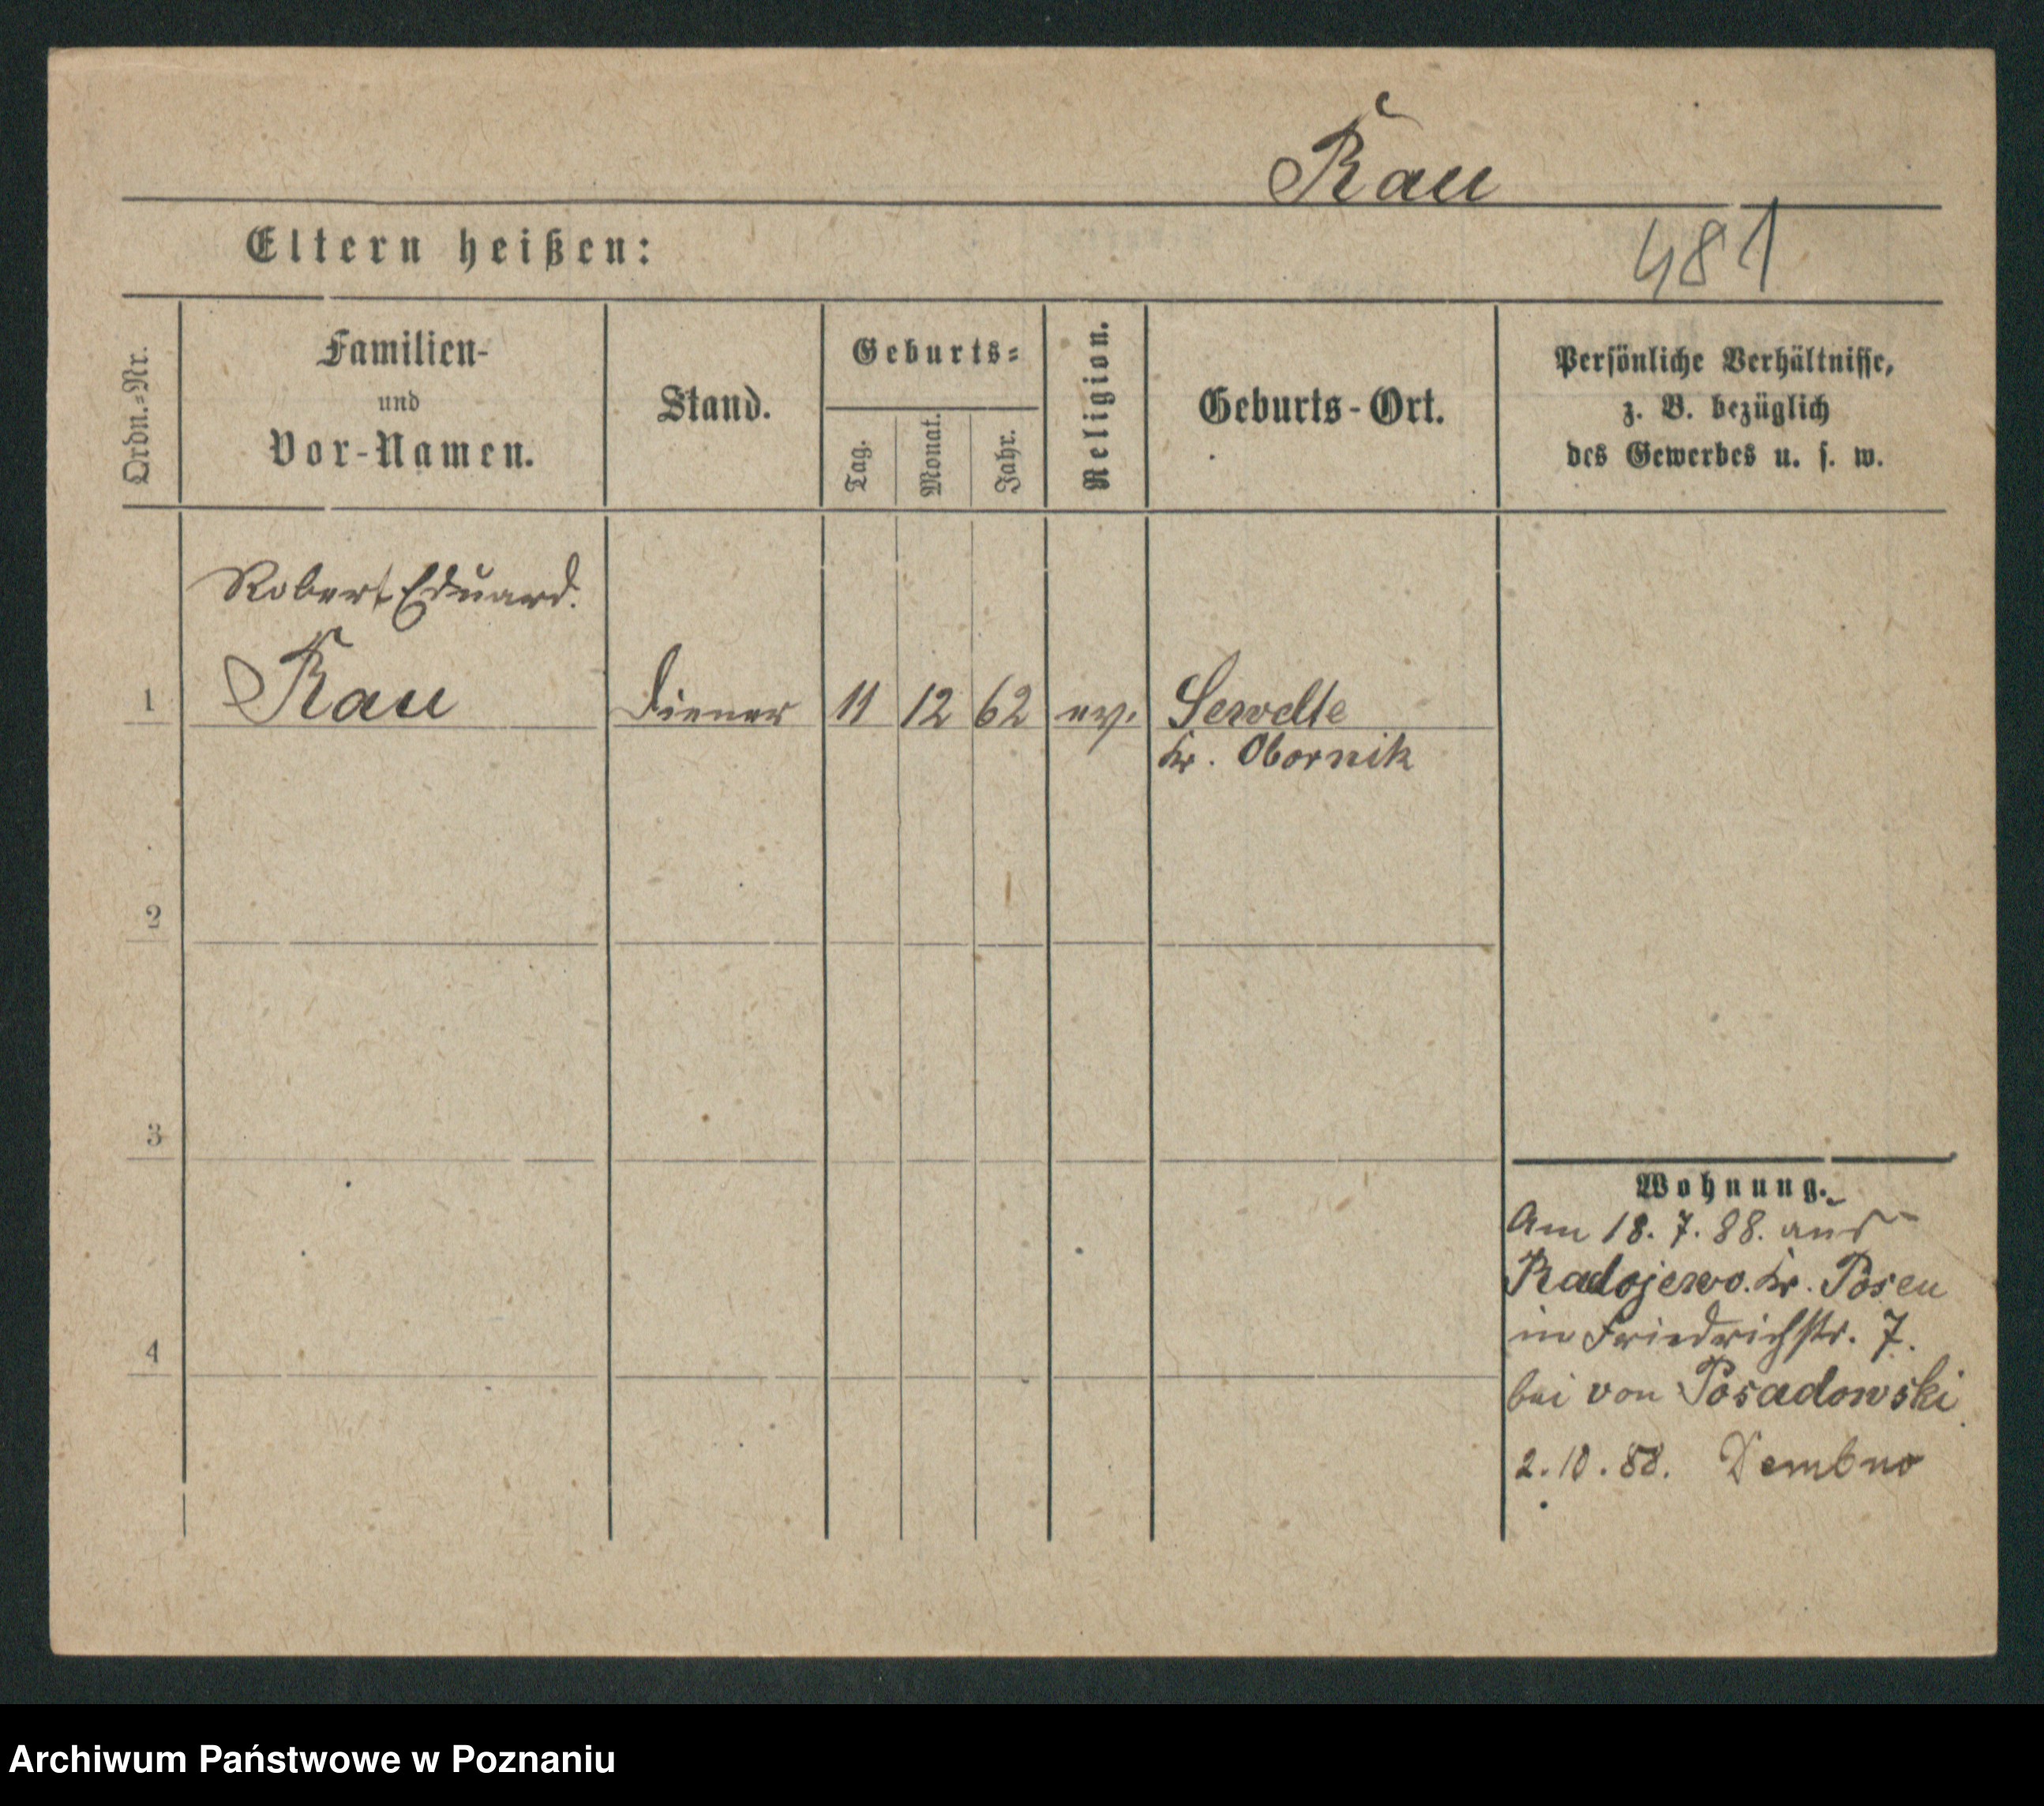 Rau
481
Eltern heißen:
Ordn.=Nr.
Familien-
und
Vor-Namen.
Stand.
Geburts=
Tag.
Monat.
Jahr.
Religion.
Geburts-Ort.
Persönliche Verhältnisse,
z. B. bezüglich
des Gewerbes u. s. w.
Robert Eduard.
1 Rau Diener 11 12 62 ev. Serodlte
Kr. Obornik
2
3
4
Wohnung.
Am 18. 7. 88. aus
Radojewo. Kr. Posen
in Friedrichstr. 7.
bei von Posadowski
2. 10. 88. Dembno
Archiwum Państwowe w Poznaniu